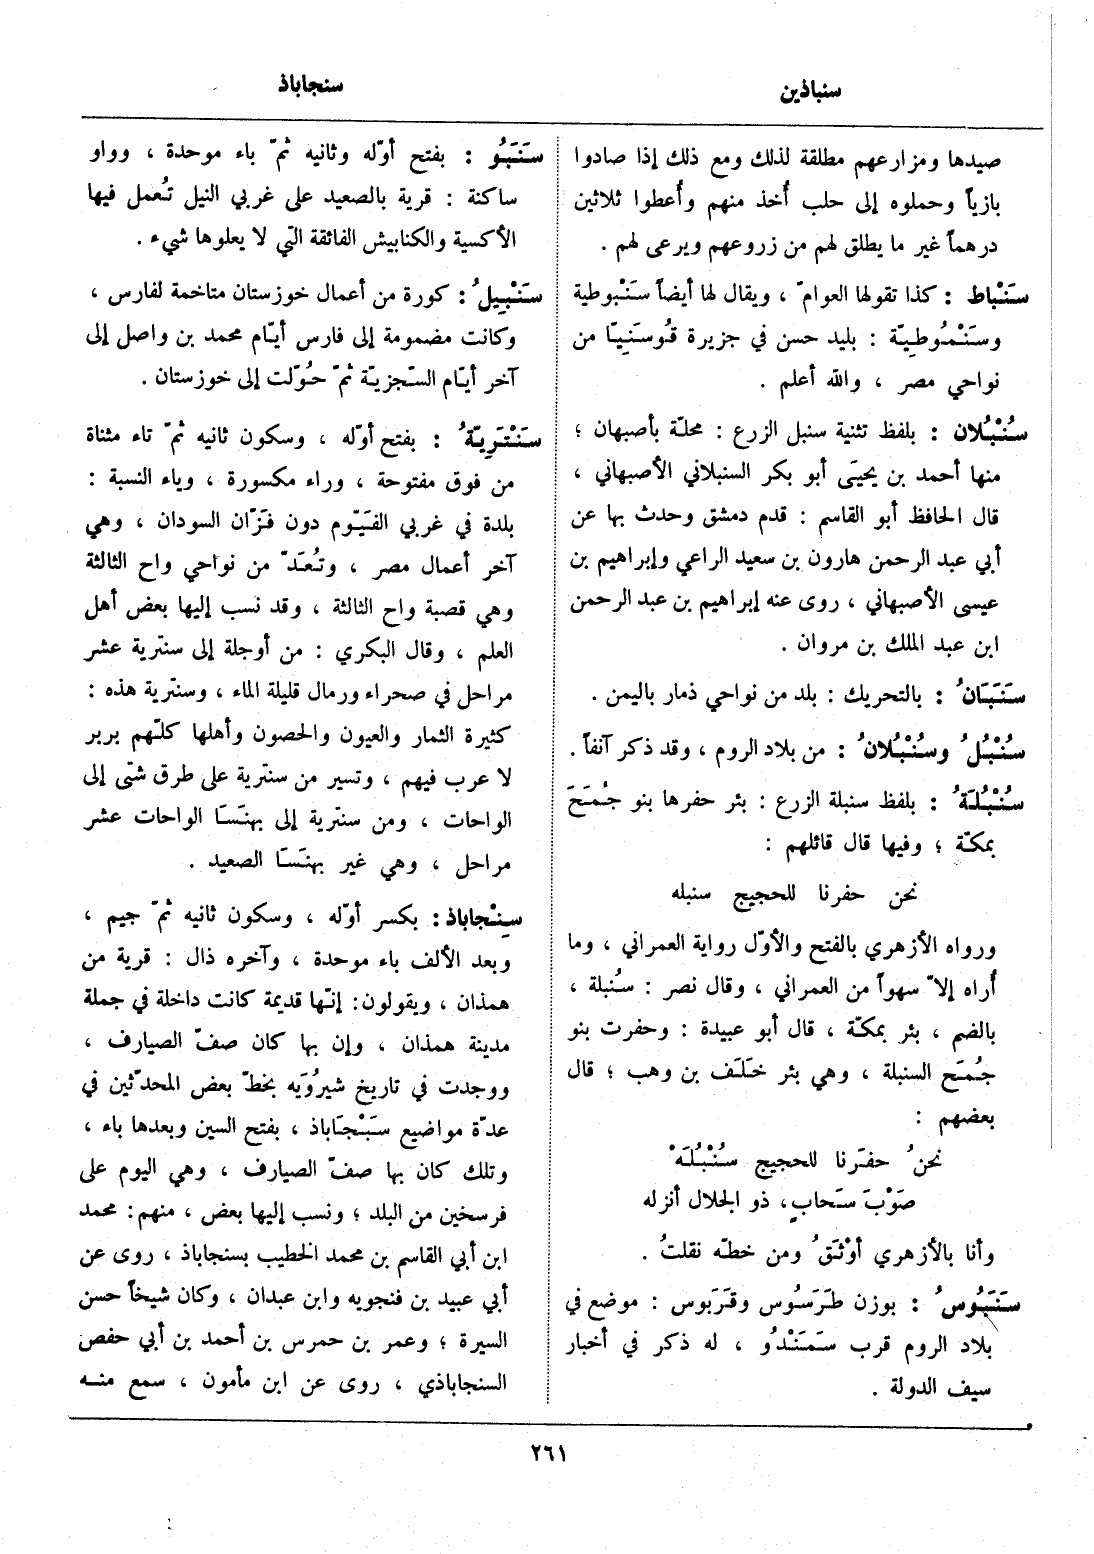 سنباذين
سنجاباذ
صيدها ومزارعهم مطلقة لذلك ومع ذلك إذا صادوا
بازياً وحملوه إلى حلب أُخذ منهم وأُعطوا ثلاثين
درهماً غير ما يطلق لهم من زروعهم ويرعى لهم .
سَنْباط : كذا تقولها العوامّ ، ويقال لها أيضاً سَنْبوطية
وسَنْمُوطِيّة : بليد حسن في جزيرة قُوسَنِيّا من
نواحي مصر ، والله أعلم .
سُنْبُلان : بلفظ تثنية سنبل الزرع : محلّة بأصبهان ؛
منها أحمد بن يحيَى أبو بكر السنبلاني الأصبهاني ،
قال الحافظ أبو القاسم : قدم دمشق وحدث بها عن
أبي عبد الرحمن هارون بن سعيد الراعي وإبراهيم بن
عيسى الأصبهاني ، روى عنه إبراهيم بن عبد الرحمن
ابن عبد الملك بن مروان .
سَنَبَانُ : بالتحريك : بلد من نواحي ذمار باليمن .
سُنْبُلُ وسُنْبُلانُ : من بلاد الروم ، وقد ذكر آنفاً .
سُنْبُلَةُ : بلفظ سنبلة الزرع : بئر حفرها بنو جُمَحَ
بمكّة ؛ وفيها قال قائلهم :
نحن حفرنا للحجيج سنبله
ورواه الأزهري بالفتح والأوّل رواية العمراني ، وما
أُراه إلاّ سهواً من العمراني ، وقال نصر : سُنبلة ،
بالضم ، بئر بمكّة ، قال أبو عبيدة : وحفرت بنو
جُمَح السنبلة ، وهي بئر خَلَف بن وهب ؛ قال
بعضهم :
نحنُ حفَرنا للحجيج سُنْبُلَهْ
صَوْبَ سَحابٍ، ذو الجلال أنزله
وأنا بالأزهري أوْثَقُ ومن خطّه نقلتُ .
سَنَبُوسُ : بوزن طَرَسُوس وقَرَبوس : موضع في
بلاد الروم قرب سَمَنْدُو ، له ذكر في أخبار
سيف الدولة .
سَنَبُو : بفتح أوّله وثانيه ثمّ باء موحدة ، وواو
ساكنة : قرية بالصعيد على غربي النيل تُعمل فيها
الأكسية والكنابيش الفائقة التي لا يعلوها شيء .
سَنْبِيلُ : كورة من أعمال خوزستان متاخمة لفارس ،
وكانت مضمومة إلى فارس أيّام محمد بن واصل إلى
آخر أيّام السّجزيّة ثمّ حُوّلت إلى خوزستان .
سَنْتَرِيّةُ : بفتح أوّله ، وسكون ثانيه ثمّ تاء مثناة
من فوق مفتوحة ، وراء مكسورة ، وياء النسبة :
بلدة في غربي الفَيّوم دون فَزّان السودان ، وهي
آخر أعمال مصر ، وتُعَدّ من نواحي واح الثالثة
وهي قصبة واح الثالثة ، وقد نسب إليها بعض أهل
العلم ، وقال البكري : من أوجلة إلى سنترية عشر
مراحل في صحراء ورمال قليلة الماء ، وسنترية هذه :
كثيرة الثمار والعيون والحصون وأهلها كلّهم بربر
لا عرب فيهم ، وتسير من سنترية على طرق شتّى إلى
الواحات ، ومن سنترية إلى بهنَسَا الواحات عشر
مراحل ، وهي غير بهنَسَا الصعيد .
سِنْجاباذ : بكسر أوّله ، وسكون ثانيه ثمّ جيم ،
وبعد الألف باء موحدة ، وآخره ذال : قرية من
همذان ، ويقولون : إنّها قديمة كانت داخلة في جملة
مدينة همذان ، وإن بها كان صفّ الصيارف ،
ووجدت في تاريخ شيرُوَيه بخطّ بعض المحدّثين في
عدّة مواضيع سَبْنجَاباذ ، بفتح السين وبعدها باء ،
وتلك كان بها صفّ الصيارف ، وهي اليوم على
فرسخين من البلد ؛ ونسب إليها بعض ، منهم : محمد
ابن أبي القاسم بن محمد الخطيب بسنجاباذ ، روى عن
أبي عبيد بن فنجويه وابن عبدان ، وكان شيخاً حسن
السيرة ؛ وعمر بن حمرس بن أحمد بن أبي حفص
السنجاباذي ، روى عن ابن مأمون ، سمع منه
٢٦١